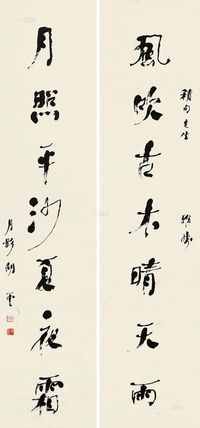 風吹古木晴天雨
先生
月照平沙夏夜霜